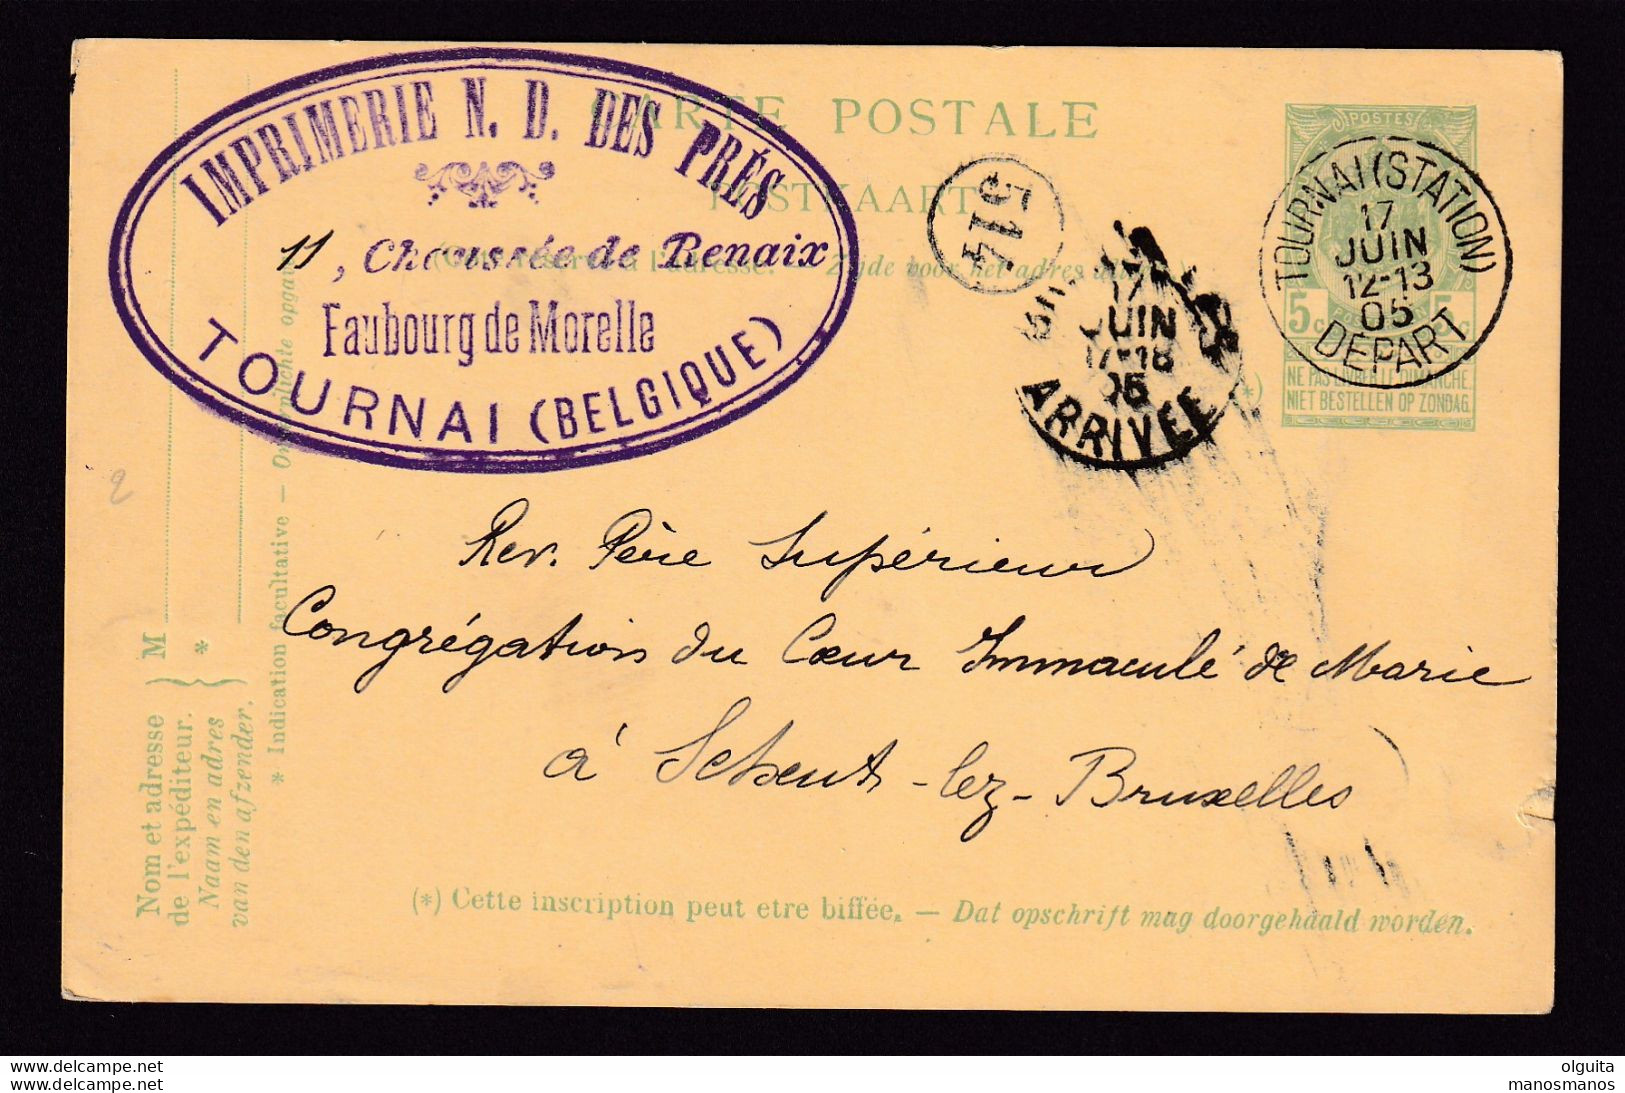 IMPRIMERIE N. D. DES PRÉS
11, Chaussée de Renaix
Faubourg de Morelle
TOURNAI (BELGIQUE)
CARTE POSTALE
POSTKAART
514
17
JUIN
17-18
05
ARRIVÉE
POSTES
TOURNAI (STATION)
17
JUIN
12-13
05
DÉPART
5c 5c
NE PAS LIVRER LE DIMANCHE.
NIET BESTELLEN OP ZONDAG.
2
Rev. Père Supérieur
Congrégation du Cœur Immaculé de Marie
à Scheut-lez-Bruxelles
M
*
Nom et adresse
de l'expéditeur.
Naam en adres
van den afzender.
* Indication facultative —
(*) Cette inscription peut etre biffée. — Dat opschrift mag doorgehaald worden.
delcampe.net
delcampe.net
olguita
manosmanos